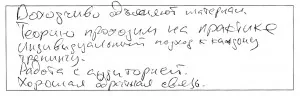 Доходчиво объясняет материал.
Теорию проходим на практике
Индивидуальный подход к каждому
тренингу.
Работа с аудиторией.
Хорошая обратная связь.